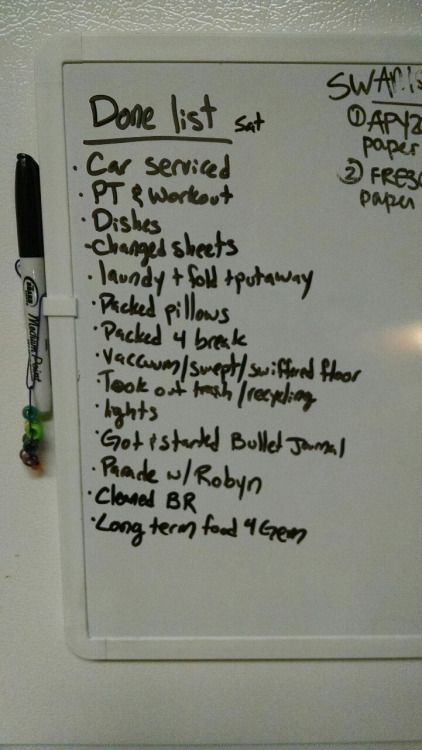 Done list Sat
· Car serviced
· PT & workout
· Dishes
- Changed sheets
· laundy + fold + putaway
· Packed pillows
· Packed 4 break
· Vaccuum/swept/swiffered floor
· Took out trash/recycling
· lights
· Got & started Bullet Journal
· Parade w/Robyn
· Cleaned BR
· Long term food 4 Gem
SWANS
① APYZ
paper
② FRESC
paper